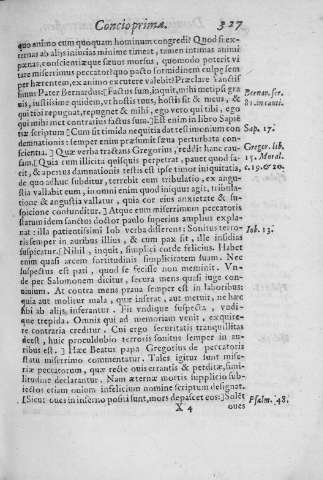 Concio prima. 327
quo animo eum quoquam hominum congredi? Quod si ex-
ternas ab aliis iniurias minime timeat, tamen intimas animi
pœnas, conscientiæque sæuos morsus, quomodo poterit vi
tare miserrimus peccator quo pacto formidinem culpæ sem
per hærentem, ex animo excutere valebit? Præclare sanctiss
simus Pater Bernardus: [Factus sum, inquit, mihi metipsi gra
uis, iustissime quidem, vt hostis tuus, hostis sit & meus, &
qui tibi repugnat, repugnet & mihi, ego vero qui tibi, ego
qui mihi met contrarius factus sum.] Est enim in libro Sapiē
tiæ scriptum [Cum sit timida nequitia dat testimonium con
demnationis: semper enim præsumit sæua perturbata con-
scientia.] Quæ verba tractans Gregorius, reddit hanc cau-
sam. [Quia cum illicita quisquis perpetrat, pauet quod fa-
cit, & apertus damnationis testis est ipse timor iniquitatis,
de quo adhuc subditur, terrebit eum tribulatio, & ex angu-
stia vallabit eum, in omni enim quod iniquu agit, tribulatio-
ne & angustia vallatur, quia cor eius anxietate & su-
spicione confunditur.] Atque eum miserrimum peccatoris
statum idem sanctus doctor paulo superius amplius expla-
nat: illa patientissimi Iob verba disserens: Sonitus terro-
ris semper in auribus illius, & cum pax sit, ille insidias
suspicatur. [Nihil, inquit, simplici corde felicius. Habet
enim quasi arcem fortitudinis simplicitatem suam. Nec
suspectus est pati, quod se fecisse non meminit. Vn-
de per Salomonem dicitur, secura mens quasi iuge con-
uiuium. At contra mens praua semper est in laboribus:
quia aut molitur mala, quæ inferat, aut metuit, ne hæc
sibi ab aliis, inferantur. Fit vndique suspecta, vndi-
que trepida. Omnis qui ad memoriam venit, exquire-
re contraria creditur. Cui ergo securitatis tranquillitas
deest, huic proculdubio terroris sonitus semper in au-
ribus est.] Hæc Beatus papa Gregorius de peccatoris
statu miserrimo commentatur. Tales igitur sunt mise-
riæ peccatorum, quæ recte ouis errantis & perditæ, simi-
litudine declarantur. Nam æternæ mortis supplicio sub-
iectos etiam ouium infelicium nomine scriptum designat.
[Sicut oues in inferno positi sunt, mors depascet eos.] Solēt
X 4 oues
Bernar. ser.
81. in canti.
Sap. 17.
Gregor. lib.
15. Moral.
c. 19. & 20.
Iob. 15.
Psalm. 48.